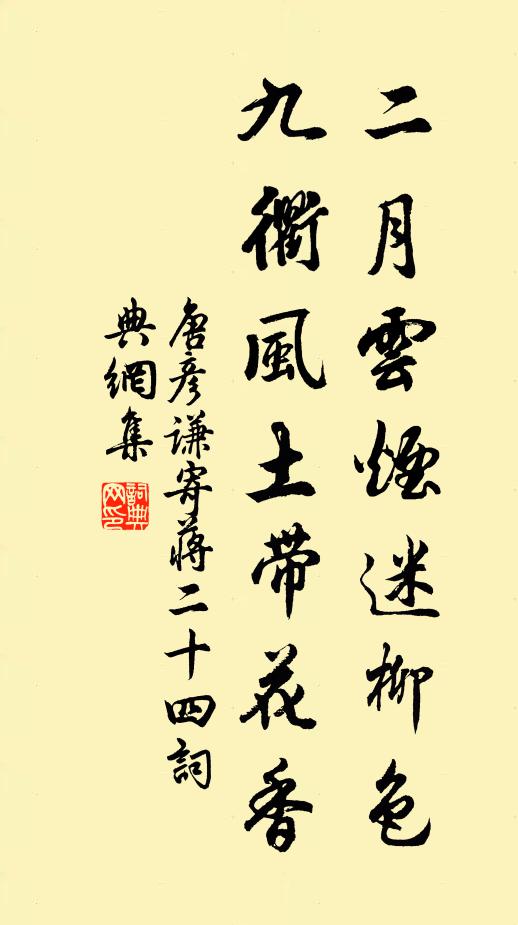 二月雲煙迷柳色
九衢風土帶花香
唐彥謙寄蔣二十四詞
典網集
詞典網印